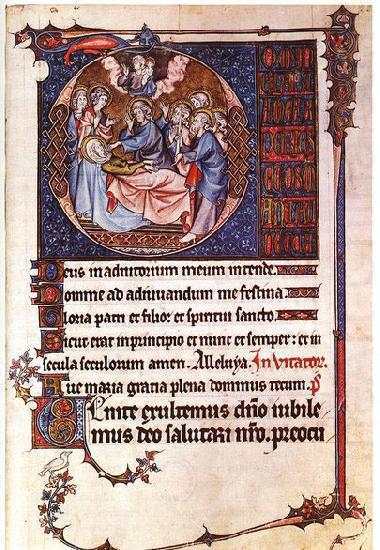 Deus in adiutorium meum intende.
Domine ad adiuuandum me festina
Gloria patri et filio et spiritui sancto.
Sicut erat in principio et nunc et semper: et in
secula seculorum amen. Alleluya. Inuitator.
Aue maria gratia plena dominus tecum. p̄
Uenite exultemus dn̄o iubile
mus deo salutari nr̄o. preocu